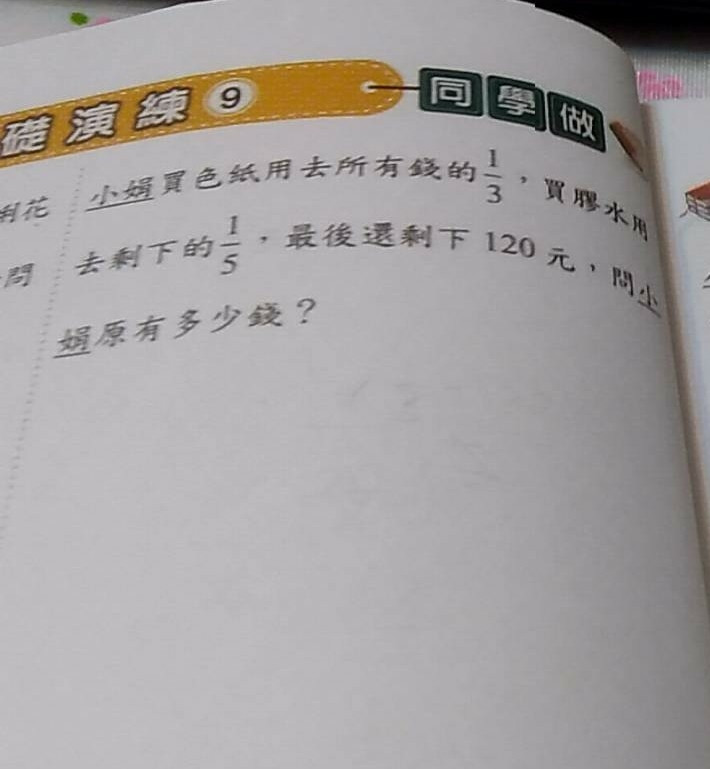 礎演練⑨ 同學做
小娟買色紙用去所有錢的1/3，買膠水用
去剩下的1/5，最後還剩下120元，問小
娟原有多少錢？
利花
問